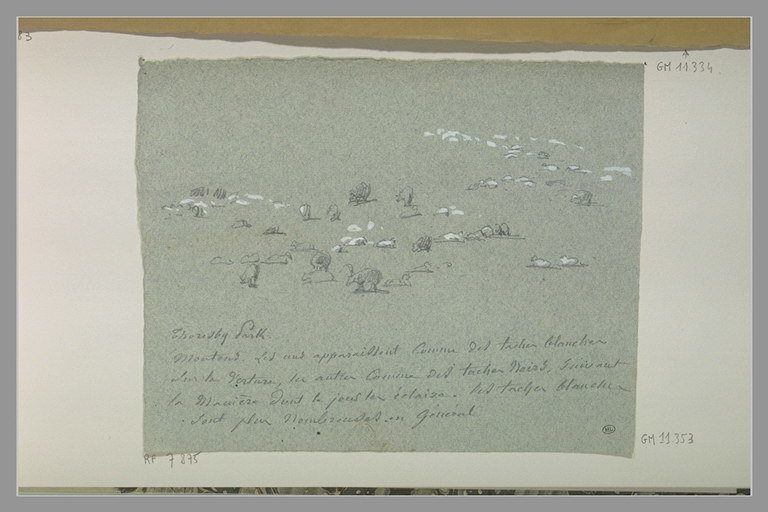 83
GM 11.334
Thoresby Park.
Moutons les uns apparaissent Comme des taches blanches
sur la Verture, les autres Comme des taches Noires, Suivant
la Manière dont le jour les éclaire. les taches blanches
sont plus Nombreuses en General
ML
GM 11.353
RF 7 875